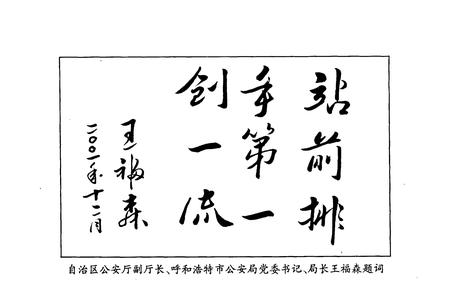 站前排
争第一
创一流
王福森
二〇〇一年十二月
自治区公安厅副厅长、呼和浩特市公安局党委书记、局长王福森题词